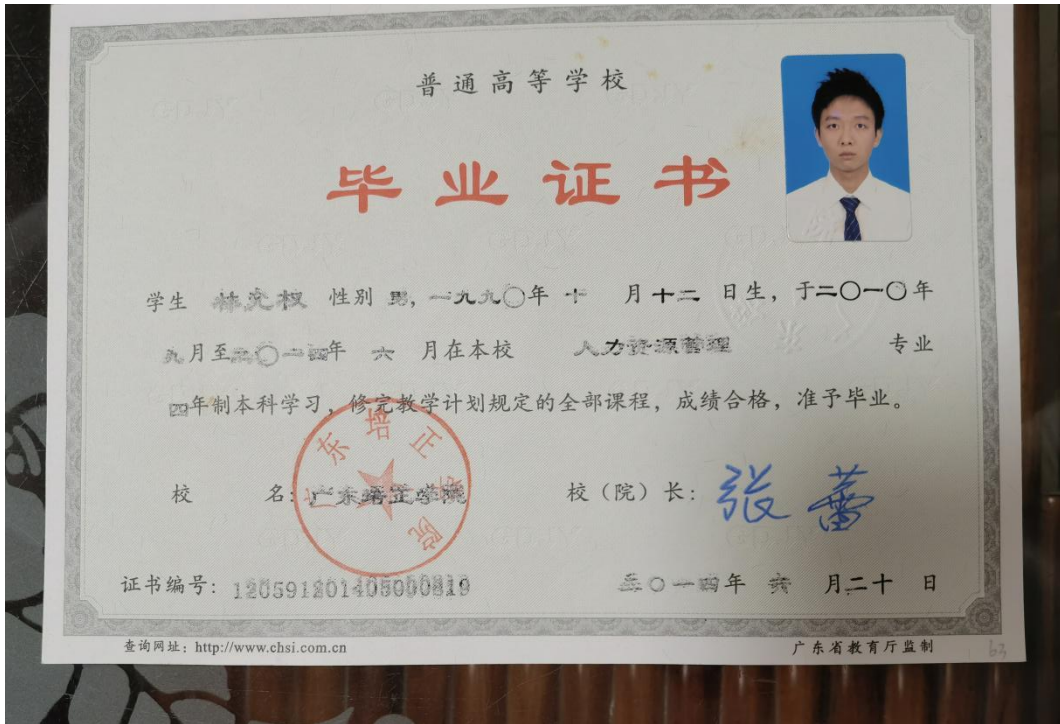 普通高等学校
毕业证书
学生 林文权 性别 男，一九九〇年 十 月十二 日生，于二〇一〇年
九月至二〇一四年 六 月在本校 人力资源管理 专业
四年制本科学习，修完教学计划规定的全部课程，成绩合格，准予毕业。
校 名：广东培正学院 校（院）长：张蕾
广东培正学院
证书编号：120591201405000819 二〇一四年 六 月二十 日
查询网址：http://www.chsi.com.cn 广东省教育厅监制
63